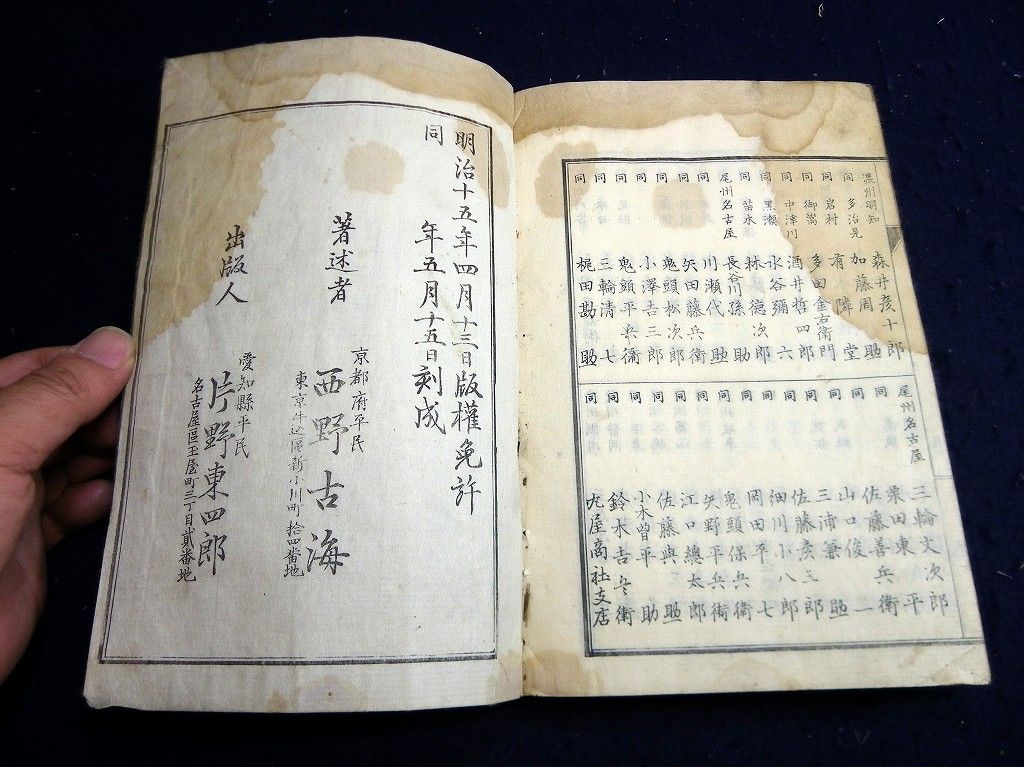 濃州明知 森井彦十郎
同 多治見 加藤周助
同 岩村 有隣堂
同 御嵩 多田金右衛門
同 中津川 酒井哲四郎
同 黒瀬 水谷彌六
同 苗木 林德次郎
尾州名古屋 長谷川孫助
同 川瀬代助
同 矢田藤兵衛
同 鬼頭松次郎
同 小澤吉三郎
同 鬼頭平兵衛
同 三輪清七
同 梶田勘助
尾州名古屋 三輪文次郎
同 栗田東平
同 佐藤善兵衛
同 山口俊一
同 三浦兼助
同 佐藤彦三郎
同 細川小八郎
同 岡田平七
同 鬼頭保兵衛
同 矢野平兵衛
同 江口總太郎
同 佐藤與助
同 小木曽平助
同 鈴木吉兵衛
同 丸屋商社支店
明治十五年四月十三日版權免許
同 年五月十五日刻成
著述者
京都府平民
西野古海
東京牛込區新小川町拾四番地
出版人
愛知縣平民
片野東四郎
名古屋區玉屋町三丁目貳番地